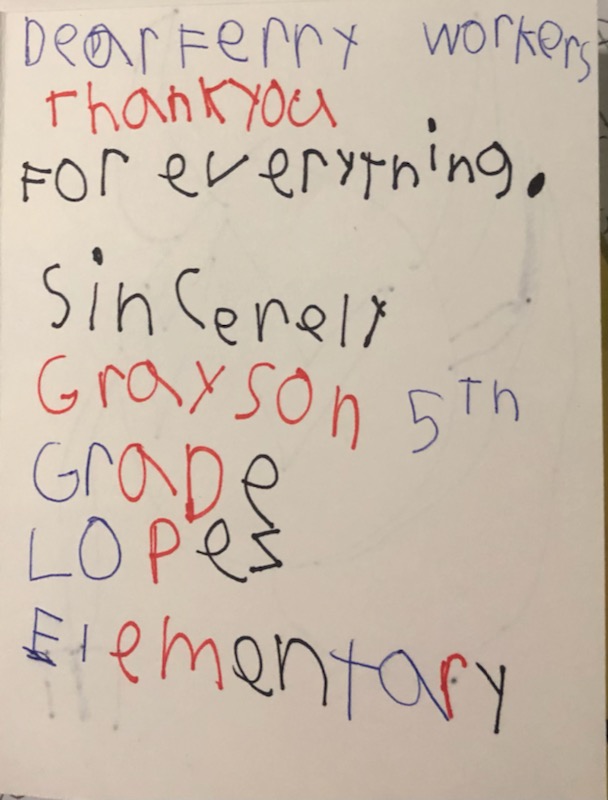 Dear Ferry workers
Thankyou
For everything.
Sincerely
Grayson 5Th
GraDe
LOPes
Elementary